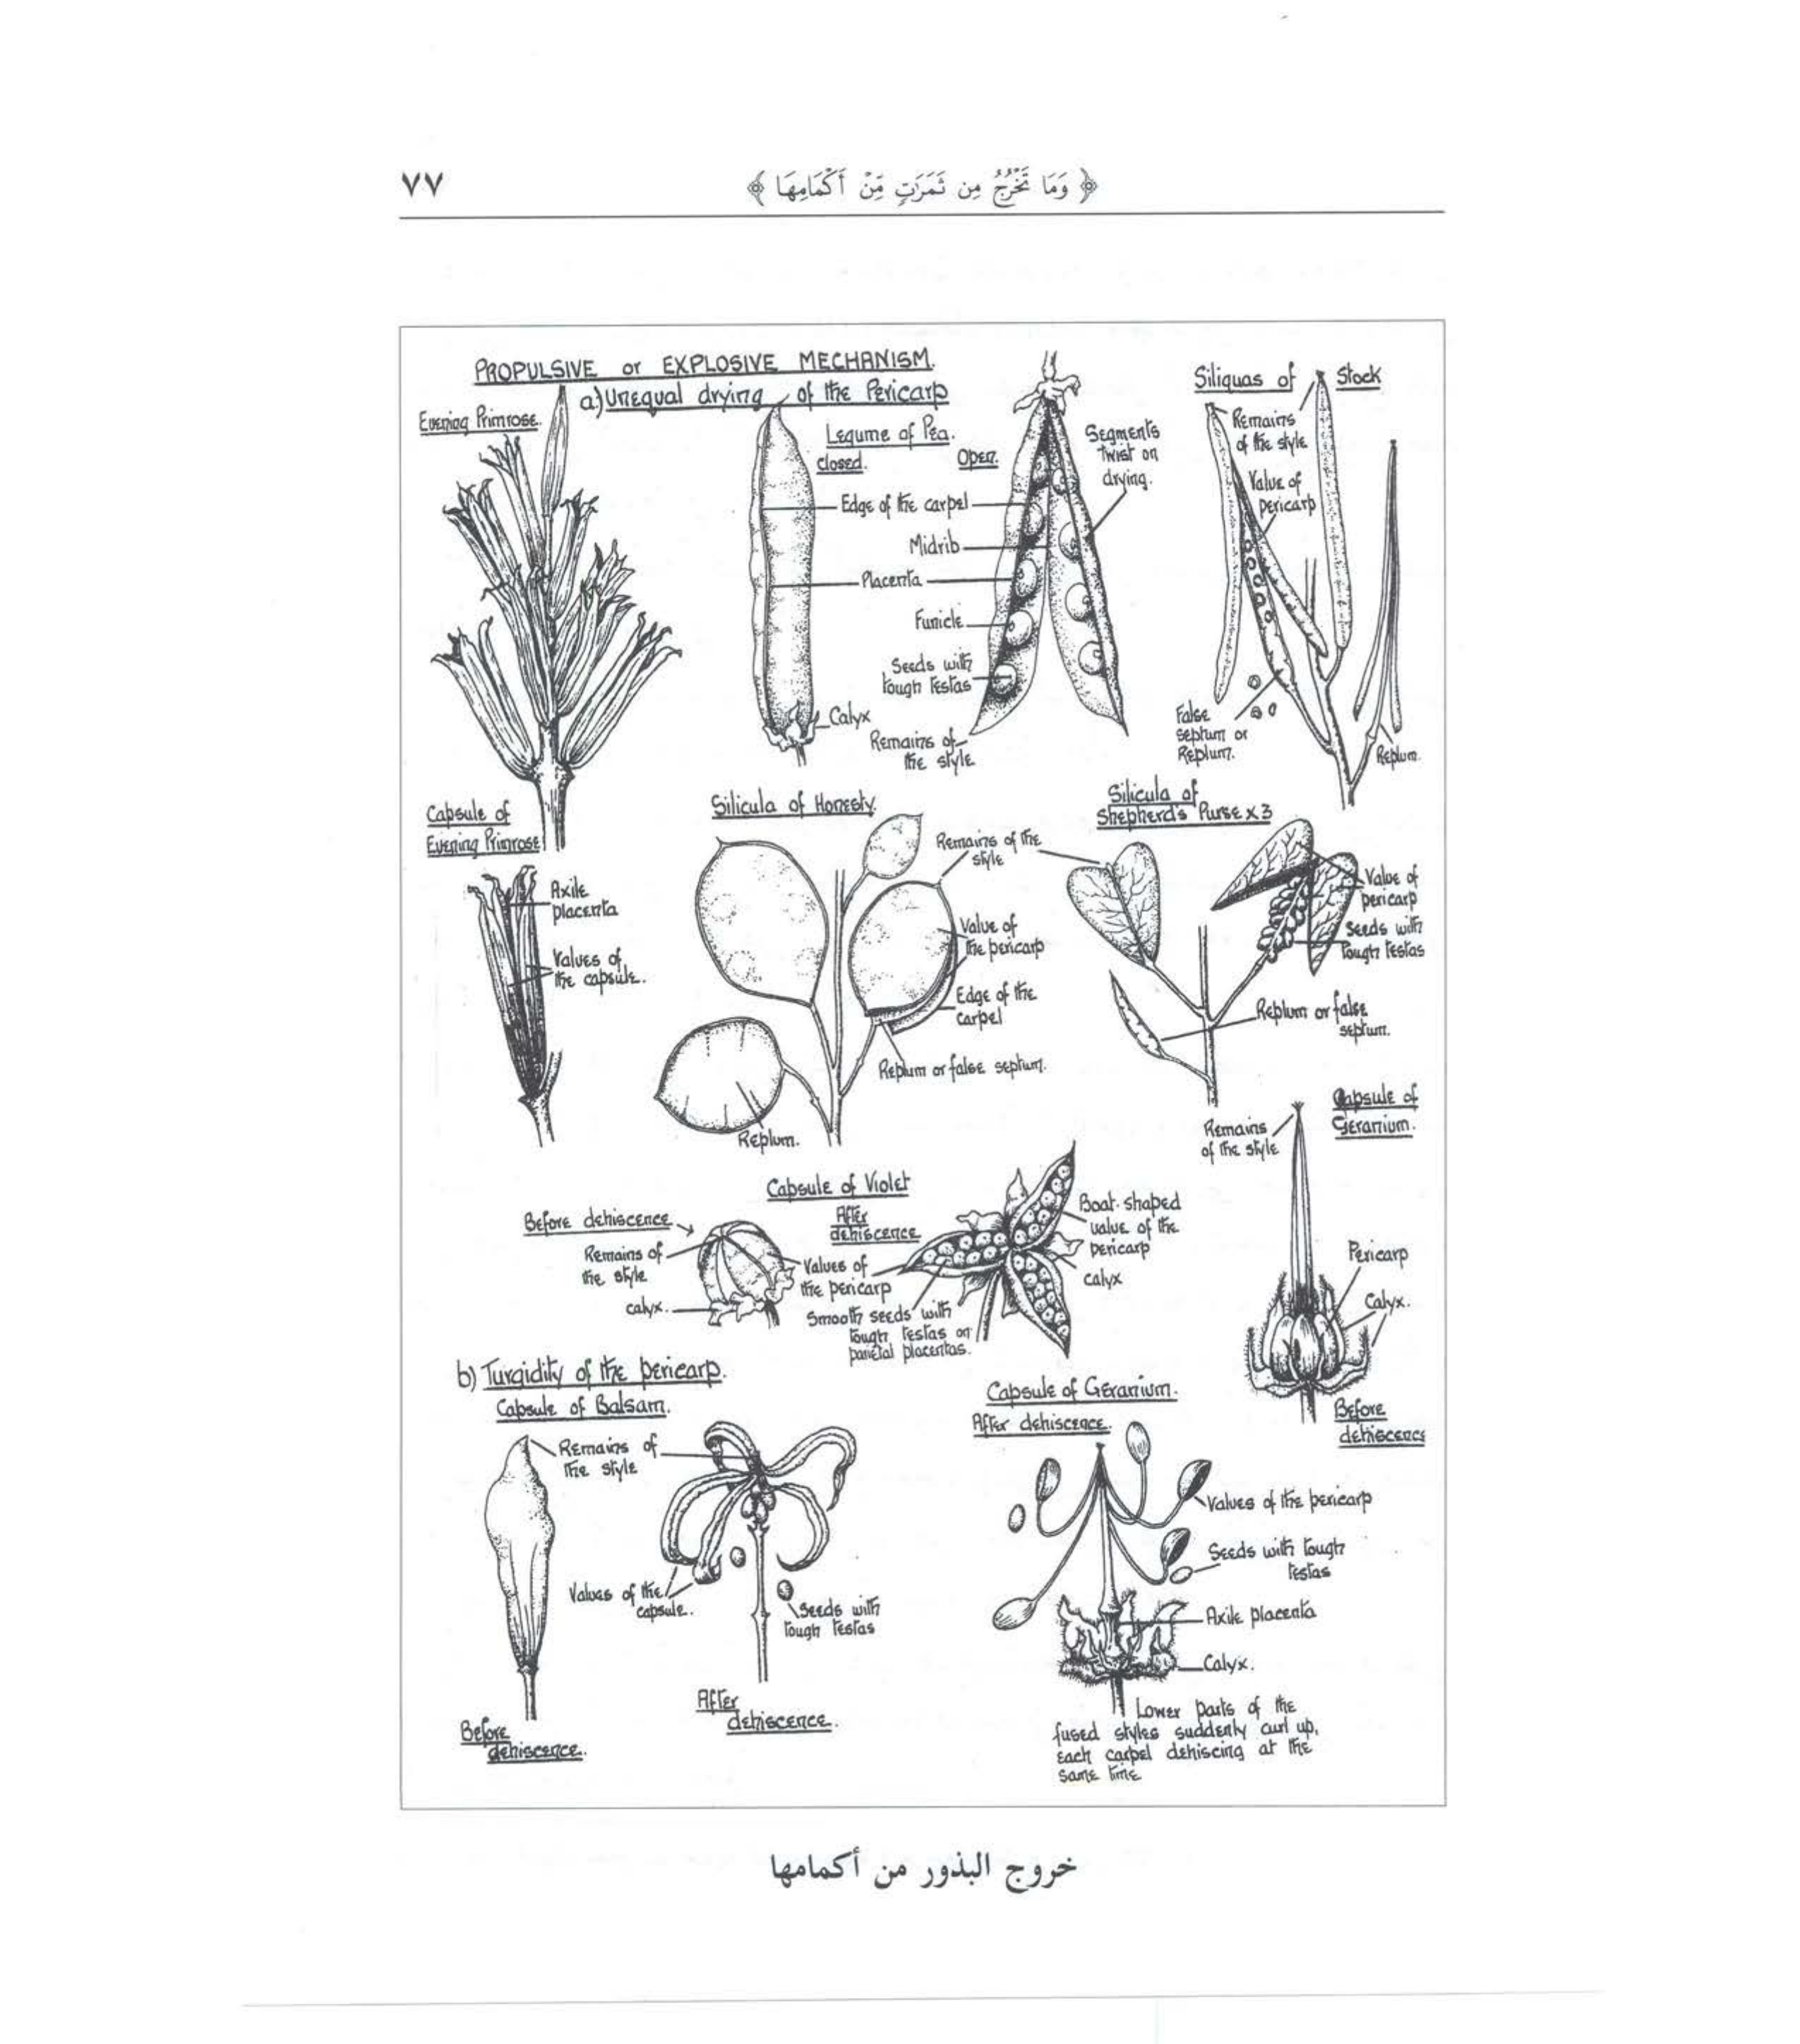 ٧٧
﴿ وَمَا تَخْرُجُ مِن ثَمَرَٰتٍ مِّنْ أَكْمَامِهَا ﴾
PROPULSIVE or EXPLOSIVE MECHANISM.
a) Unequal drying of the Pericarp
Evening Primrose.
Legume of Pea.
closed.
Open.
Segments
twist on
drying.
Edge of the carpel
Midrib
Placenta
Funicle
Seeds with
tough testas
Calyx
Remains of
the style
Siliquas of Stock
Remains
of the style
Valve of
pericarp
False
septum or
Replum.
Replum.
Capsule of
Evening Primrose
Axile
placenta
Valves of
the capsule.
Silicula of Honesty.
Remains of the
style
Valve of
the pericarp
Edge of the
carpel
Replum or false septum.
Replum.
Silicula of
Shepherd's Purse x 3
Valve of
pericarp
Seeds with
tough testas
Replum or false
septum.
Capsule of
Geranium.
Remains
of the style
Pericarp
Calyx.
Before
dehiscence
Capsule of Violet
Before dehiscence
After
dehiscence
Remains of
the style
calyx.
Valves of
the pericarp
Smooth seeds with
tough testas on
parietal placentas.
Boat-shaped
valve of the
pericarp
calyx
b) Turgidity of the pericarp.
Capsule of Balsam.
Remains of
the style
Valves of the
capsule.
Seeds with
tough testas
Before
dehiscence.
After
dehiscence.
Capsule of Geranium.
After dehiscence.
Valves of the pericarp
Seeds with tough
testas
Axile placenta
Calyx.
Lower parts of the
fused styles suddenly curl up,
each carpel dehiscing at the
same time
خروج البذور من أكمامها